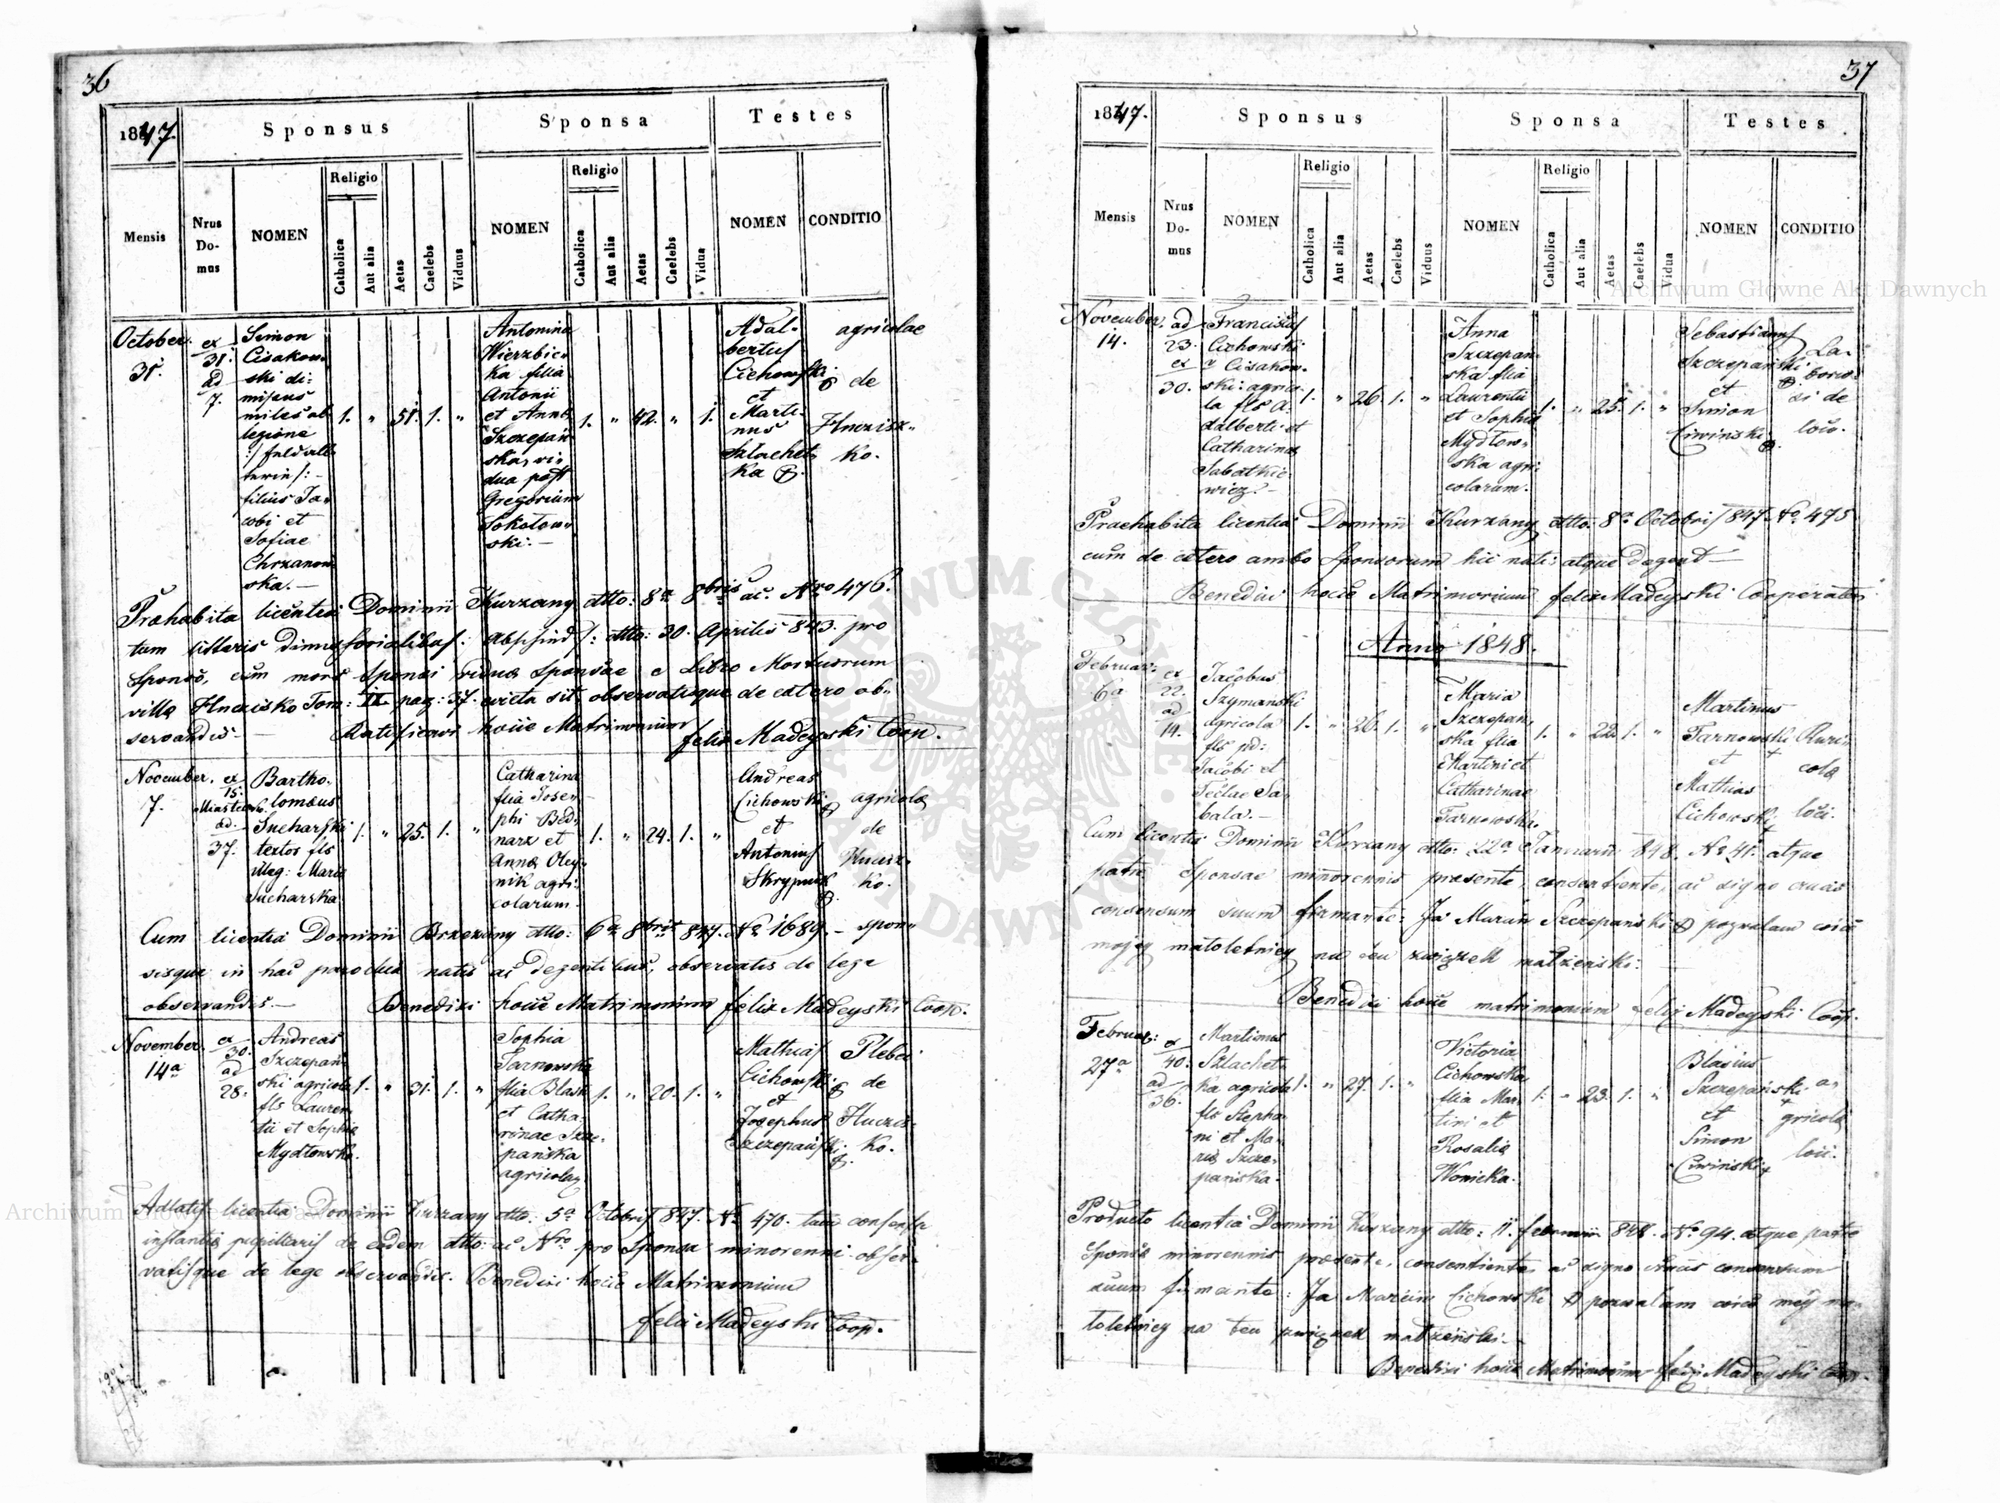 36
1847.
Sponsus
Sponsa
Testes
Mensis
Nrus Do- mus
NOMEN
Religio
Catholica
Aut alia
Aetas
Caelebs
Viduus
NOMEN
Religio
Catholica
Aut alia
Aetas
Caelebs
Vidua
NOMEN
CONDITIO
October
31.
ex
31.
ad
7.
Simon
Cisakow-
ski di-
missus
miles ab
legione
filius Ja-
cobi et
Sofiae
Chrzanow
ska.—
1. " 51. 1. "
Antonina
Wierzbic-
ka filia
Antonii
et Anna
Szczepań
ska, vi-
dua post
Gregorium
Sokołow-
ski.—
1. " 42. " 1.
Adal-
bertus
Cichowski
et
Marti-
nus
Szlachet
ka
agricolae
de
Hucisz-
ko.
Praehabita licentia Dominii Kurzany dtto: 8a 8bris ac. Nro 476.
tum litteris dimissorialibus: Abschied: dtto: 30. Aprilis 843. pro
Sponso, cum mors Sponsi viduae Sponsae e Libro Mortuorum
villa Hucisko Tom: II pag: 37. evicta sit, observatisque de cetero ob-
servandis—
Ratificavi hocce Matrimonium
felix Madeyski Coop.
November.
7.
ex
15.
Miasteczko
ad
37.
Bartho-
lomaeus
Sucharski
textor fls
illeg: Maria
Sucharska
1. " 25. 1. "
Catharina
flia Jose-
phi Bed-
narz et
Anna Oley-
nik agri-
colarum.
1. " 24. 1. "
Andreas
Cichowski
et
Antonius
Skrypnik
agricola
de
Hucisz-
ko.
Cum licentia Dominii Brzezany dtto: 6a 8bris 847. No 1689. – spon-
sisque in hac parochia natis ac degentibus, observatis de lege
observandis.—
Benedixi hocce Matrimonium felix Madeyski Coop.
November
14a
ex
30.
ad
28.
Andreas
Szczepań-
ski agricola
fls Lauren-
tii et Sophia
Mydłowska.
1. " 31. 1. "
Sophia
Tarnowska
flia Blasii
et Catha-
rinae Szcze-
pańska
agricolar
1. " 20. 1. "
Mathias
Cichowski
et
Josephus
Szczepański
Plebei
de
Hucis-
ko.
Adlatis licentia Dominii Kurzany dtto: 5a Octobris 847. No 470. tum consensu
instantia pupillaris de eodem dtto: ac Nro pro Sponsa minorenni obser-
vatisque de lege observandis. Benedixi hocce Matrimonium
felix Madeyski Coop.
37
1847.
Sponsus
Sponsa
Testes
Mensis
Nrus Do- mus
NOMEN
Religio
Catholica
Aut alia
Aetas
Caelebs
Viduus
NOMEN
Religio
Catholica
Aut alia
Aetas
Caelebs
Vidua
NOMEN
CONDITIO
November.
14.
ad
23.
ex
30.
Franciscus
Cichowski
Cisakow-
ski: agrico-
la fls A-
dalberti et
Catharina
Sabatkie-
wicz.—
1. " 26 1. "
Anna
Szczepan-
ska flia
Laurentii
et Sophia
Mydłow-
ska agri-
colarum.
1. " 25. 1. "
Sebastianus
Szczepański
et
Simon
Ciwiński
La-
borio-
si de
loco.
Praehabita licentia Dominii Kurzany dtto: 8a Octobris 847. No 475
cum de cetero ambo Sponsorum hic nati: atque degent—
Benedixi hocce Matrimonium felix Madeyski Cooperator
Anno 1848.
Februar:
6a
ex
22.
ad
19.
Jacobus
Szymanski
Agricola
fls pd:
Jacobi et
Teclae Sa-
bala.—
1. " 26. 1. "
Maria
Szczepan-
ska flia
Martini et
Catharinae
Tarnowska.
1. " 22. 1. "
Martinus
Tarnowski
et
Mathias
Cichowski
Ruri-
cola
loci.
Cum licentia Dominii Kurzany dtto: 22a Januarii 848. No 41. atque
patre Sponsae minorennis praesente, consentiente, ac signo crucis
consensum suum firmante: Ja Marcin Szczepański pozwalam córce
mojey małoletniey na ten związek małżeński:
Benedixi hocce matrimonium felix Madeyski Coop.
Februar:
27a
ex
40.
ad
36.
Martinus
Szlachet-
ka agricola
fls Stepha-
ni et Ma-
ria Szcze-
pańska.
1. " 27. 1. "
Victoria
Cichowska
flia Mar-
tini et
Rosalia
Wonicka.
1. " 23. 1. "
Blasius
Szczepański
et
Simon
Ciwiński
a-
gricola
loci.
Producto licentia Dominii Kurzany dtto: 11. februarii 848. No 94. atque patre
Sponsa minorennis praesente, consentiente, ac signo Crucis consensum
suum firmante: Ja Marcin Cichowski pozwalam córce mojey ma-
łoletniey na ten związek małżeński.—
Benedixi hocce Matrimonium felix Madeyski Coop.
Archiwum Główne Akt Dawnych
ARCHIWUM GŁÓWNE AKT DAWNYCH